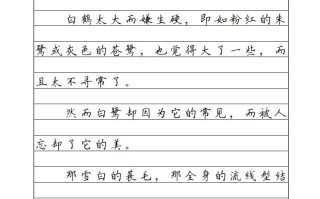 白鹤太大而嫌生硬，即如粉红的朱
鹭或灰色的苍鹭，也觉得大了一些，而
且太不寻常了。
然而白鹭却因为它的常见，而被人
忘却了它的美。
那雪白的蓑毛，那全身的流线型结